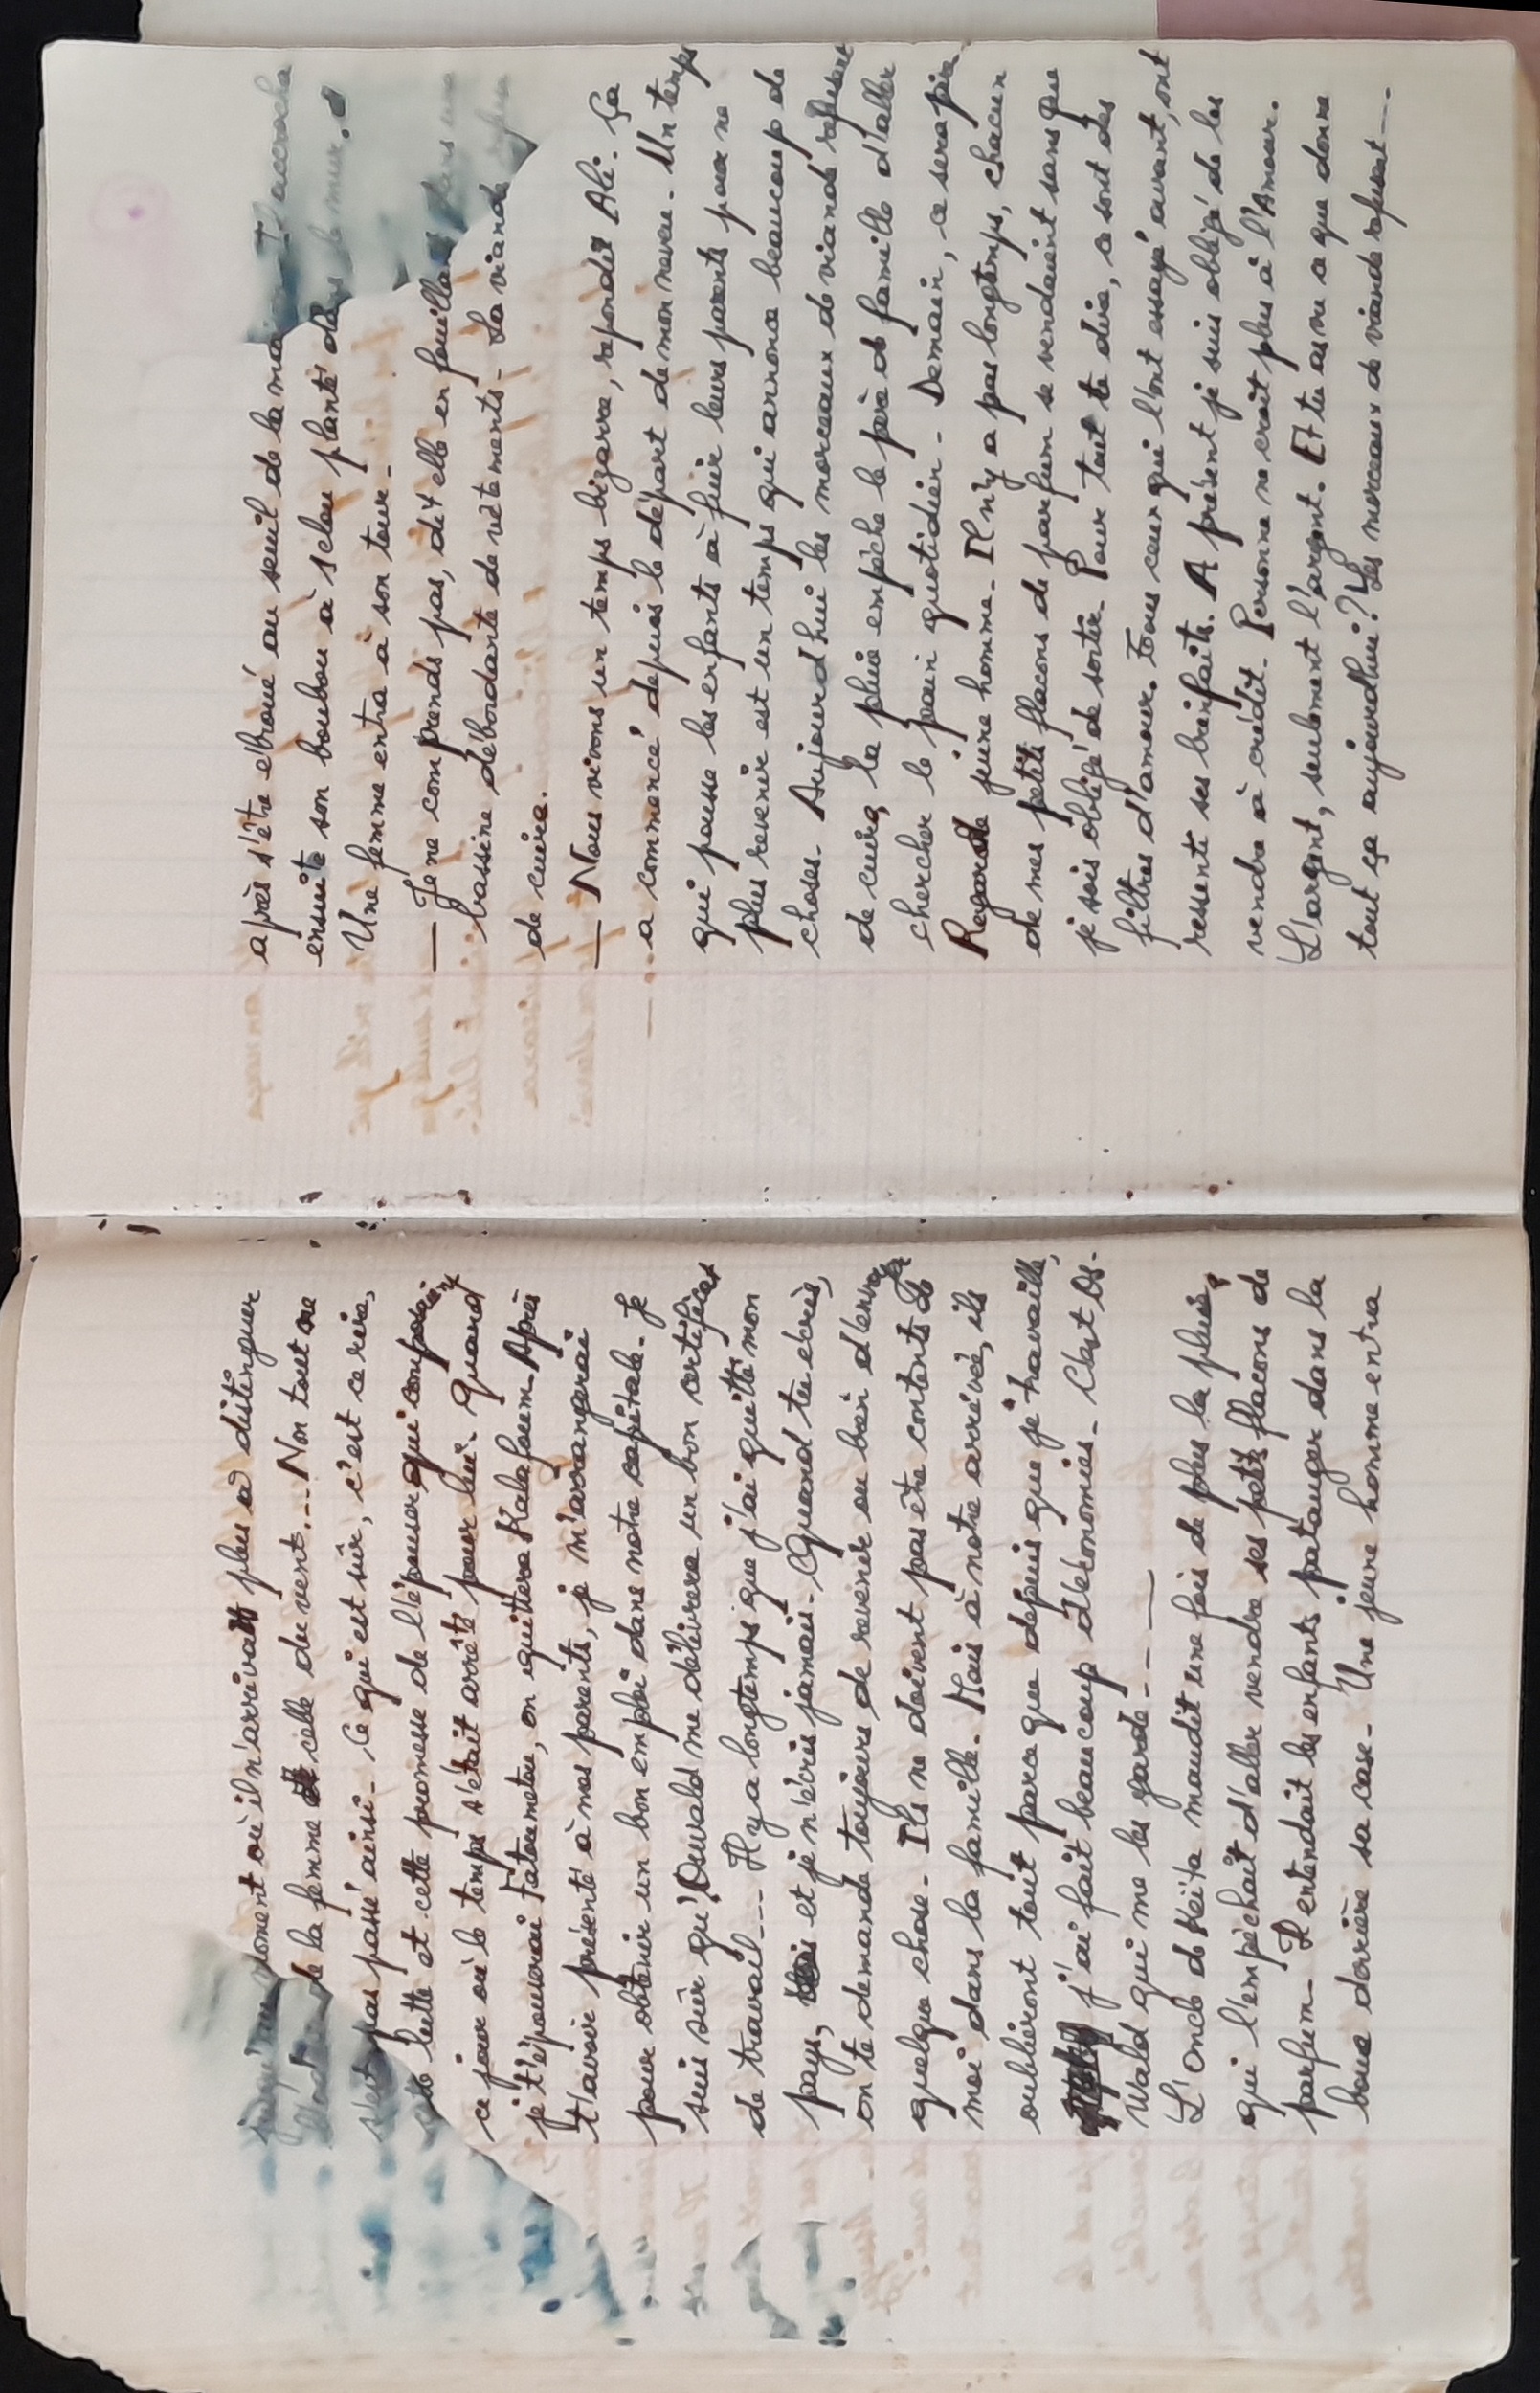 jusqu'au moment où il n'arrivait plus à distinguer
de la femme celle du vent... Non tout ne
s'est pas passé ainsi - Ce qui est sûr, c'est ce rire,
cette lutte et cette promesse de l'épouser qui
ce jour où le temps s'était arrêté pour lui. Quand
je t'épouserai Fatoumatou, on quittera Kalafourm. Après
t'avoir présenté à mes parents, je m'arrangerai
pour obtenir un bon emploi dans notre capitale. Je
suis sûr qu'Oswald me délivrera un bon certificat
de travail --- Il y a longtemps que j'ai quitté mon
pays, et je n'écris jamais. Quand tu écris,
on te demande toujours de revenir ou bien d'envoyer
quelque chose. Ils ne doivent pas être contents de
moi dans la famille. Mais à notre arrivée, ils
oublieront tout parce que depuis que je travaille,
j'ai fait beaucoup d'économies. C'est Os-
wald qui me les garde - - —
L'oncle de Keïta maudit une fois de plus la pluie,
qui l'empêchait d'aller vendre ses petits flacons de
parfum. Il entendait les enfants patauger dans la
boue derrière sa case. Une jeune homme entra
après s'être ébroué au seuil de la maison. Il accrocha
ensuite son boubou à 1 clou planté dans le mur.
Une femme entra à son tour -
— Je ne comprends pas, dit elle en fouillant dans une
bassine débordante de vêtements - La viande refuse
de cuire.
— Nous vivons un temps bizarre, repondit Ali. Ça
— .. a commencé depuis le départ de mon neveu. Un temps
qui pousse les enfants à fuir leurs parents pour ne
plus revenir est un temps qui annonce beaucoup de
choses. Aujourd'hui les morceaux de viande refusent
de cuire, la pluie empêche le père de famille d'aller
chercher le pain quotidien. Demain, ce sera pire
Regarde jeune homme. Il n'y a pas longtemps, chacun
de mes petits flacons de parfum se vendaient sans que
je sois obligé de sortir. Pour tout te dire, ce sont des
filtres d'amour. Tous ceux qui l'ont essayé avant, ont
ressenti ses bienfaits. A présent je suis obligé de les
vendre à crédit. Personne ne croit plus à l'Amour.
L'argent, seulement l'argent. Et tu as vu ce que donne
tout ça aujourd'hui? Les morceaux de viande refusent —.